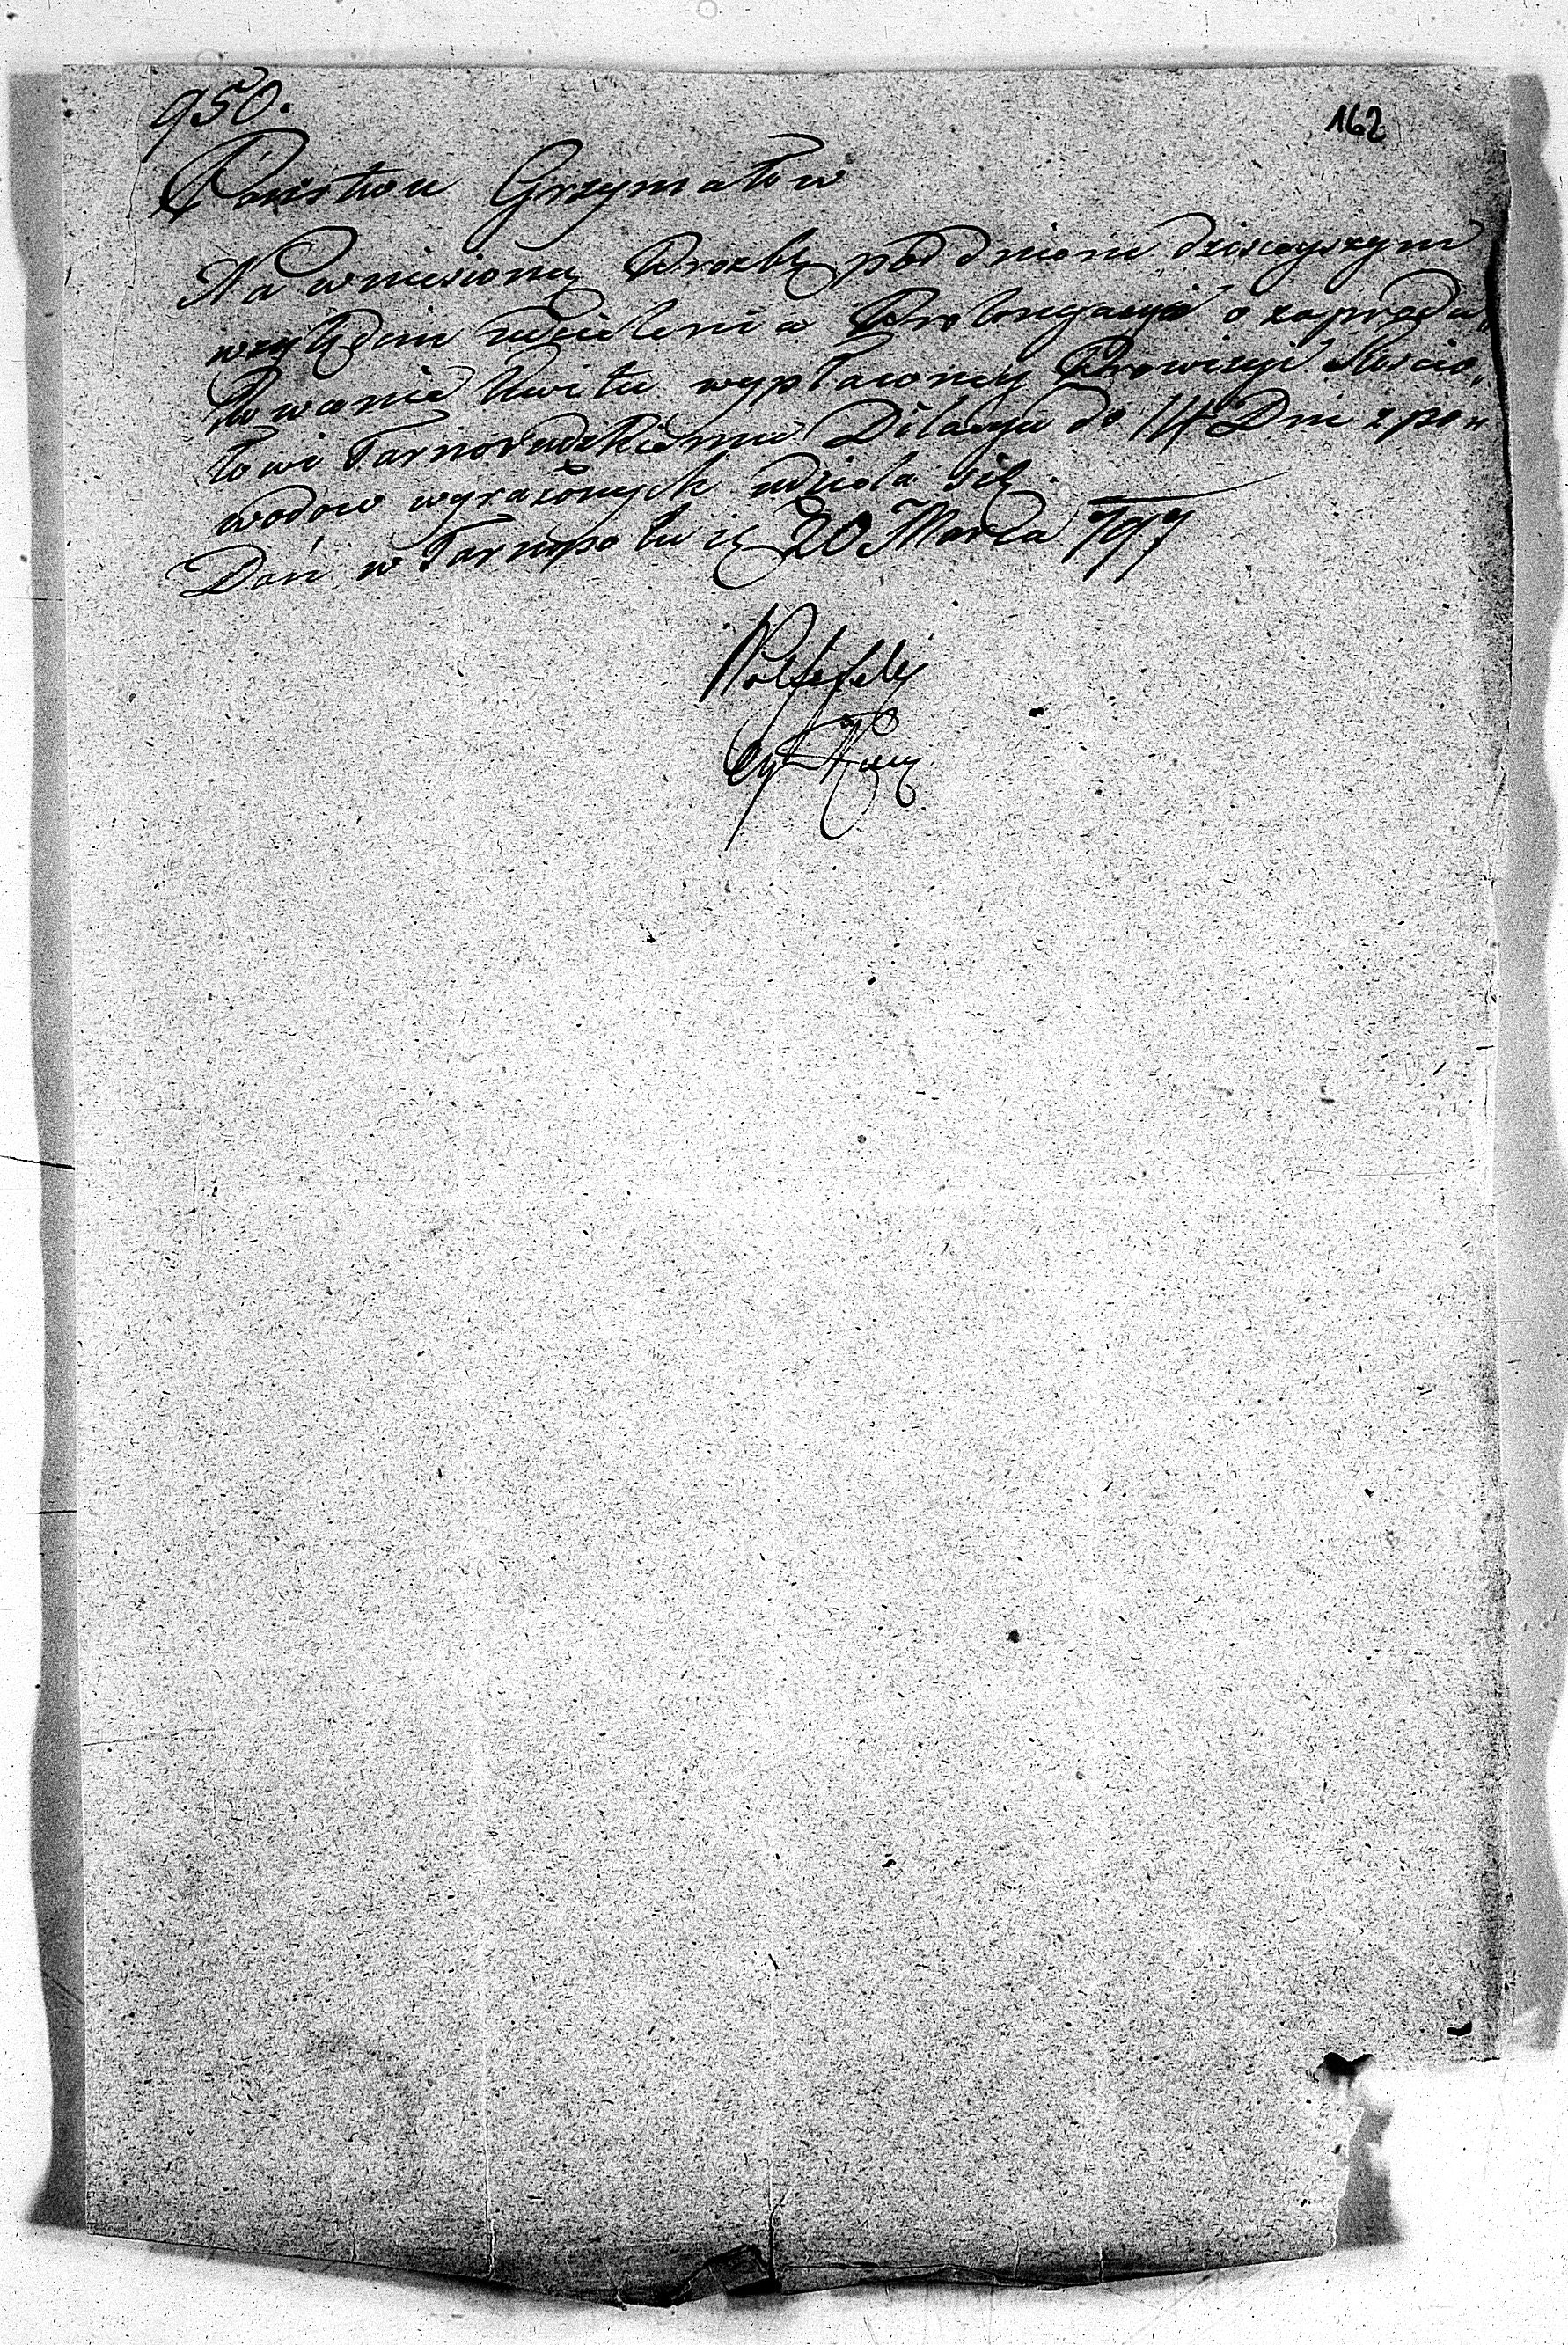 950.
162
Państwu Grzymałow
Na wniesioną Prozbę pod dniem dzisieyszym
względem udzielenia Prolongacyi o zaprodu„
kowanie kwitu wypłaconey Prowizyi Koscio„
łowi Tarnorudzkiemu Dilacya do 14 Dni z po„
wodow wyrażonych udziela się.
Dań w Tarnopolu d 20 Marca 797